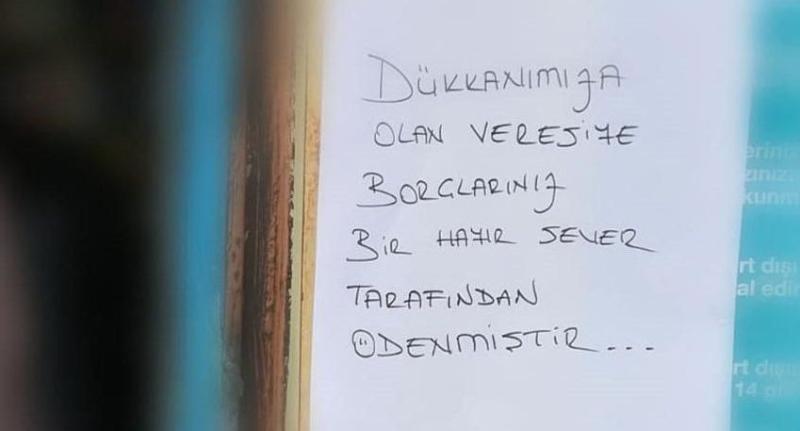 DÜKKANIMIZA
OLAN VERESİYE
BORÇLARINIZ
BİR HAYIR SEVER
TARAFINDAN
ÖDENMİŞTİR...
rt dışı
al edi
rt dışı
14 g